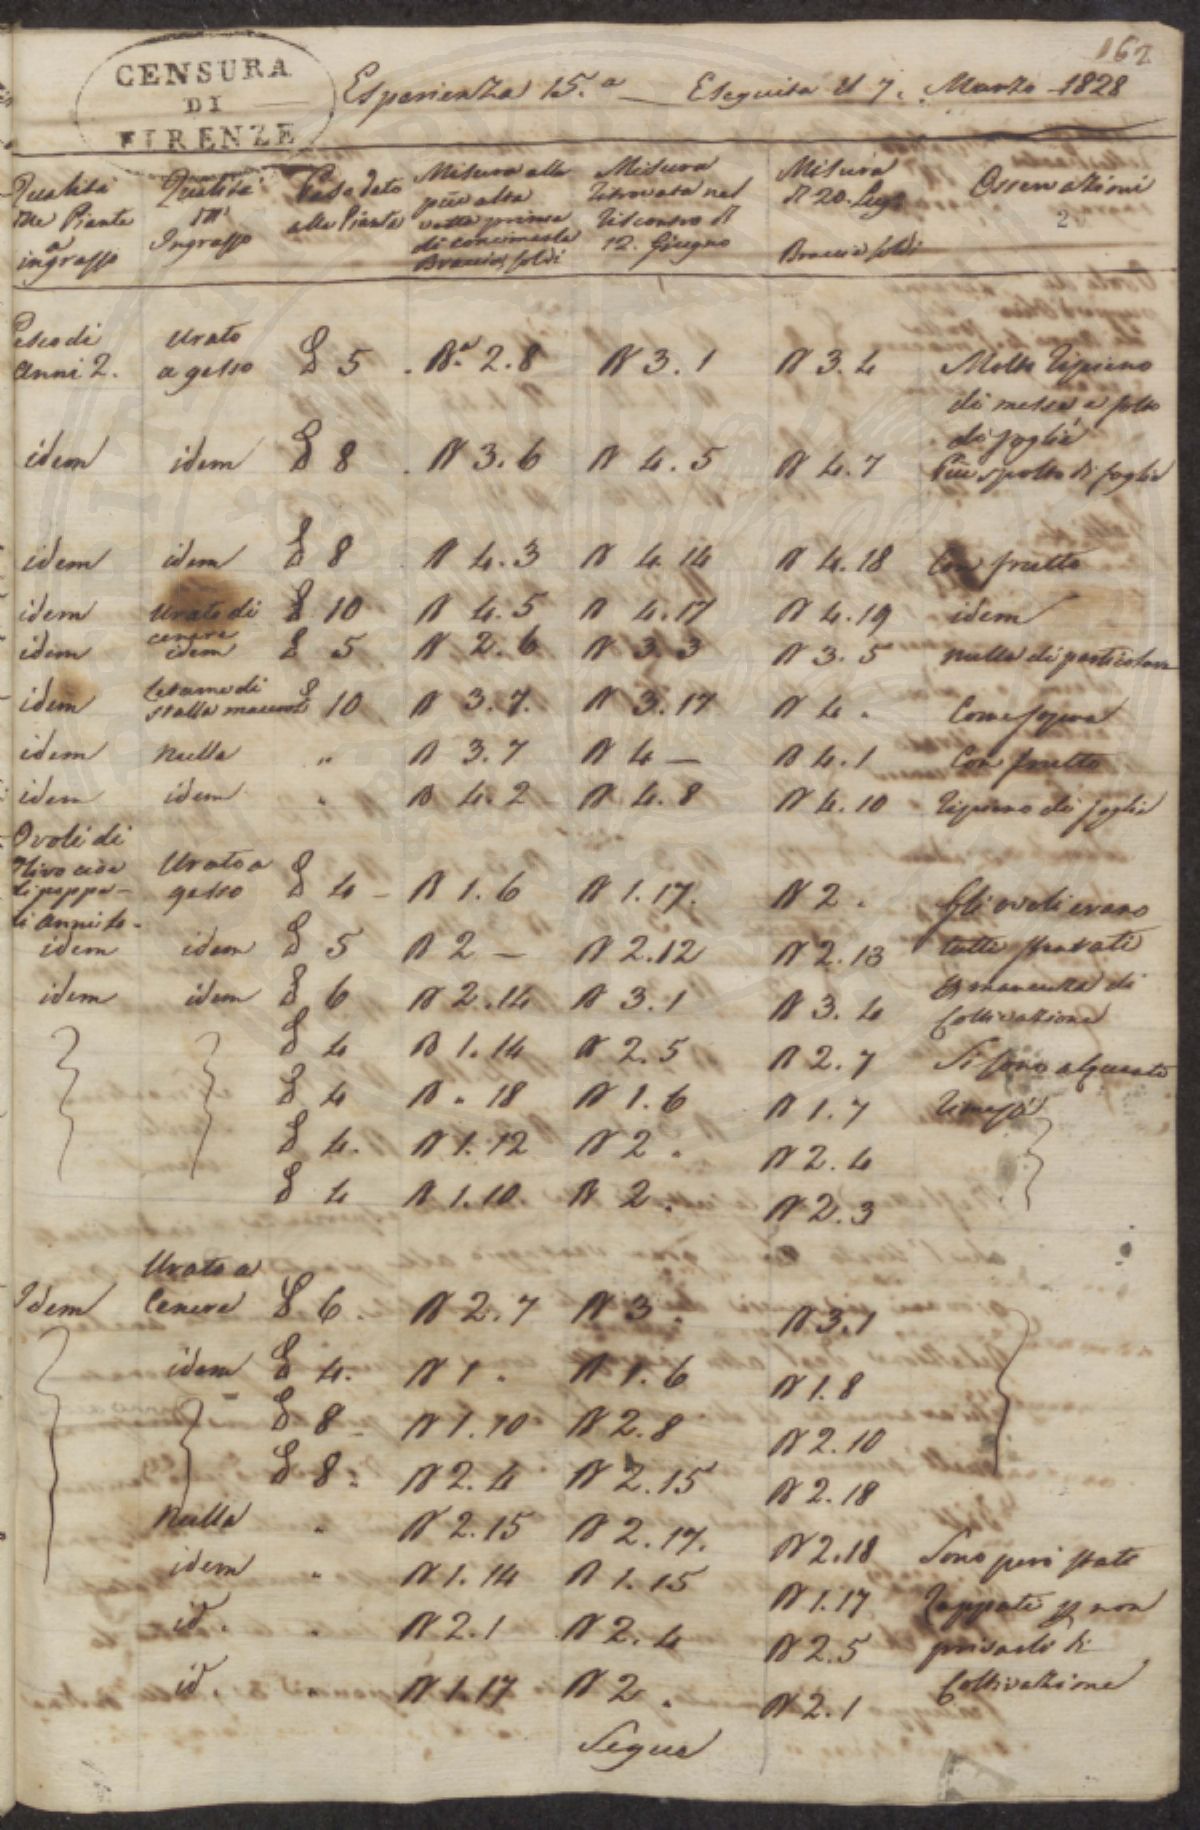 162
CENSURA
DI
FIRENZE
Esperienza 15.a — Eseguita il 7. Marzo 1828
Qualità delle Piante a ingrasso
Qualità d'Ingrasso
Peso dato alla Pianta
Misura alla più alta vetta prima di concimarla Braccia, soldi
Misura ritrovata nel riscontro di 12. Giugno
Misura di 20. Lug. Braccia soldi
Osservazioni
2
Pesco di Anni 2. Urato a gesso £ 5 Ba. 2.8 B 3.1 B 3.4 Molto ripieno
di messe e folto
di foglie
idem idem £ 8 B 3.6 B 4.5 B 4.7 Più spolto di foglie
idem idem £ 8 B 4.3 B 4.14 B 4.18 Con frutto
idem Urato di cenere £ 10 B 4.5 B 4.17 B 4.19 idem
idem idem £ 5 B 2.6 B 3.3 B 3.5 nulla di particolare
idem Letame di stalla macerato £ 10 B 3.7. B 3.17 B 4. Come sopra
idem nulla " B 3.7 B 4 — B 4.1 Con frutto
idem idem " B 4.2 B 4.8 B 4.10 ripieno di foglie
Ovoli di
Urato a gesso £ 4 — B 1.6 B 1.17. B 2. Gli ovoli erano
di Anni
idem idem £ 5 B 2 — B 2.12 B 2.13 tutti
idem idem £ 6 B 2.14 B 3.1 B 3.4 mancanza di
Coltivazione
£ 4 B 1.14 B 2.5 B 2.7 Si sono alquanto
£ 4 B " 18 B 1.6 B 1.7 rimessi
£ 4. B 1.12 B 2. B 2.4
£ 4 B 1.10. B 2. B 2.3
Idem Urato a Cenere £ 6. B 2.7 B 3. B 3.1
idem £ 4. B 1. B 1.6 B 1.8
£ 8 B 1.10 B 2.8 B 2.10
£ 8. B 2.4 B 2.15 B 2.18
Nulla " B 2.15 B 2.17. B 2.18 Sono però state
idem " B 1.14 B 1.15 B 1.17 zappate non
id. " B 2.1 B 2.4 B 2.5 privarli di
id. " B 1.17 B 2. B 2.1 Coltivazione
Segue